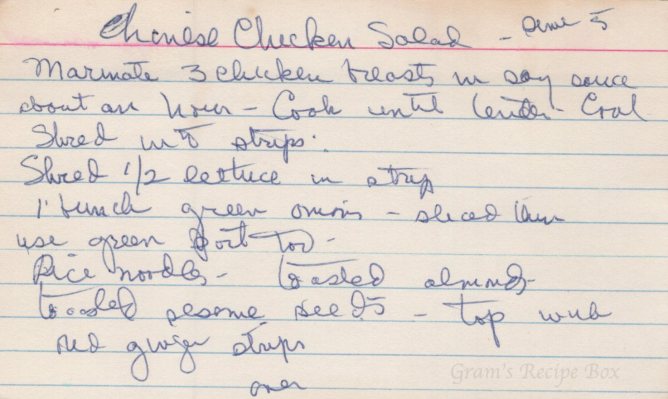 Chinese Chicken Salad - Serve 5
Marinate 3 chicken breasts in soy sauce
about an hour - Cook until tender - Cool
Shred into strips.
Shred 1/2 lettuce in strip
1 bunch green onions - sliced thin
use green part too -
Rice noodles - toasted almonds -
toasted sesame seeds - top with
red ginger strips
over
Gram's Recipe Box